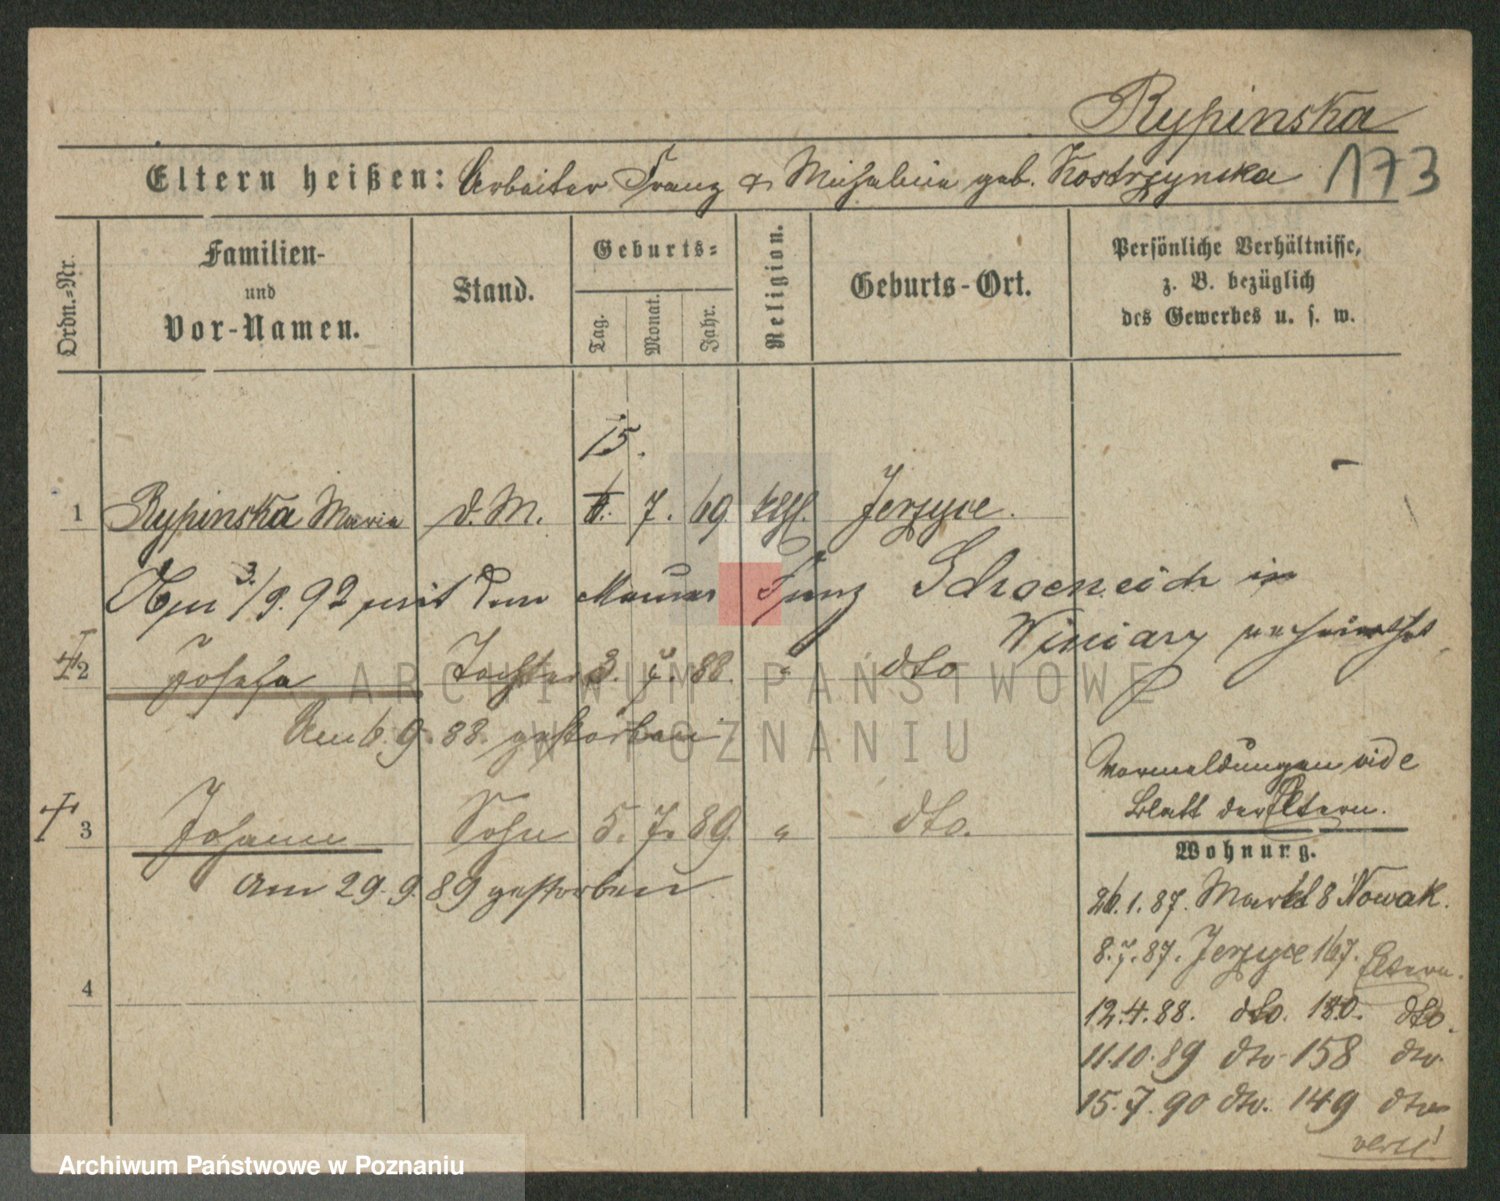 Rypinska
Eltern heißen: Arbeiter Franz & Michalina geb. Kostrzynska 173
Ordn.-Nr.
Familien-
und
Vor-Namen.
Stand.
Geburts-
Tag.
Monat.
Jahr.
Religion.
Geburts-Ort.
Persönliche Verhältnisse,
z. B. bezüglich
des Gewerbes u. s. w.
15.
1 Rypinska Maria d. M. 6. 7. 69. kth. Jerzyce.
3./9. 92 mit dem Maurer Franz Schoeneich in
Winiary verheirathet.
2 Josefa Tochter 3. 7. 88. " dto
Am 6. 9. 88. gestorben
3 Johann Sohn 5. 7. 89. " dto.
Am 29. 9. 89 gestorben
4
Vormeldungen vide
Blatt der Eltern.
Wohnung.
26. 1. 87. Markt 8 Nowak.
8. 7. 87. Jerzyce 167. Eltern.
12. 4. 88. dto. 180. dto.
11. 10. 89 dto 158 dto.
15. 7. 90 dto. 149 dto
ARCHIWUM PAŃSTWOWE
W POZNANIU
Archiwum Państwowe w Poznaniu